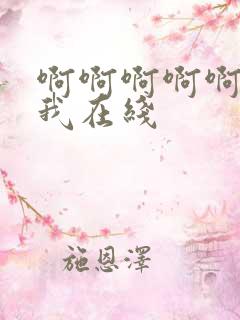 啊啊啊啊啊
我在线
施恩泽